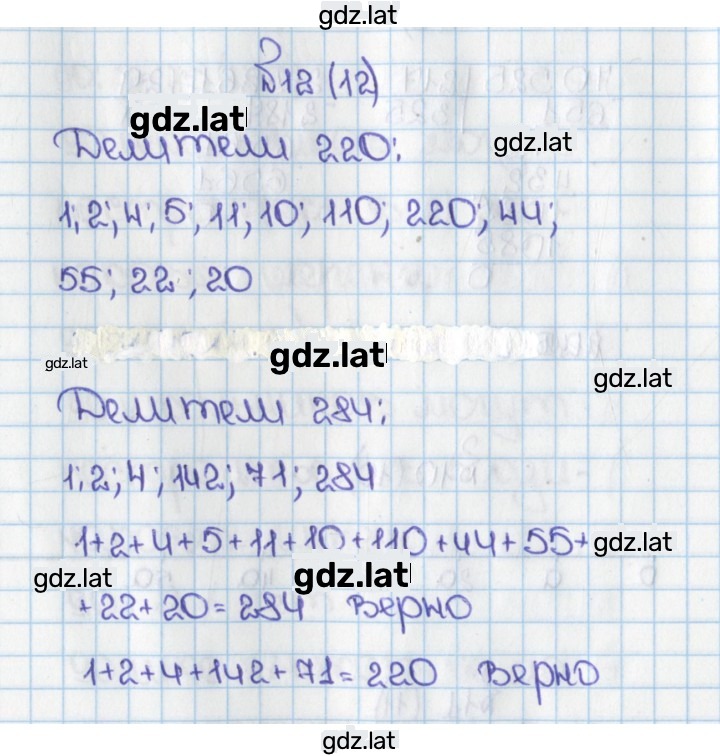 gdz.lat
№12 (12)
gdz.lat
Делители 220:
gdz.lat
1; 2; 4; 5; 11; 10; 110; 220; 44;
55; 22; 20
gdz.lat
gdz.lat
gdz.lat
Делители 284:
1; 2; 4; 142; 71; 284
1+2+4+5+11+10+110+44+55+
gdz.lat
gdz.lat
gdz.lat
+22+20=284 верно
1+2+4+142+71=220 верно
gdz.lat